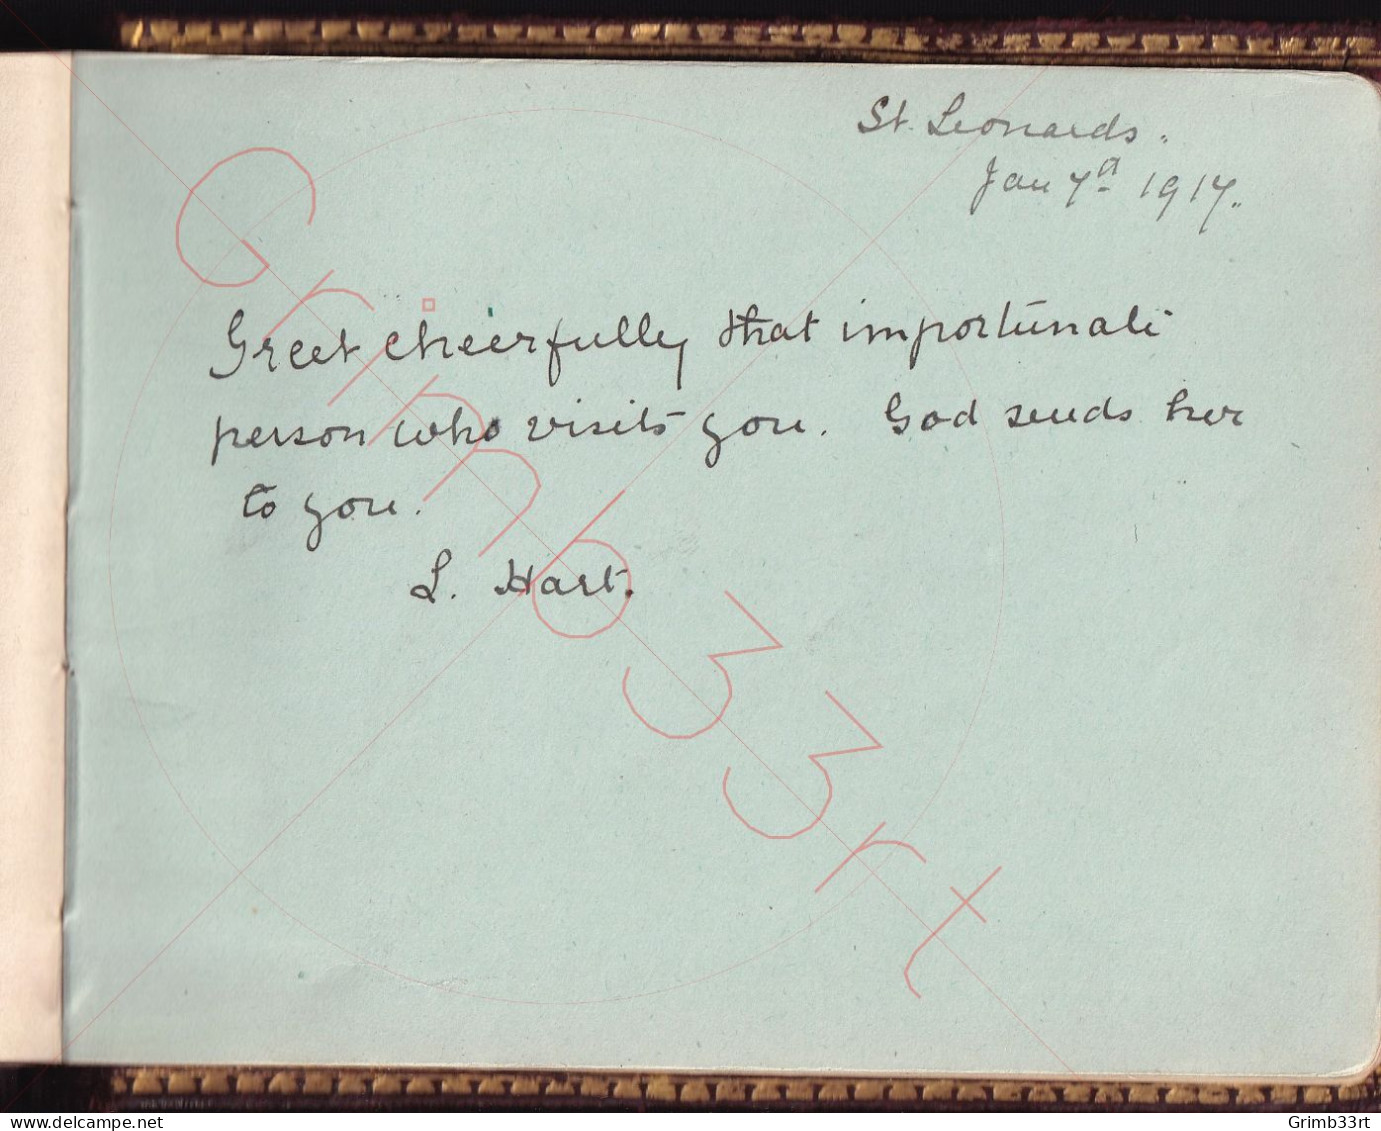 St. Leonards.
Jan 7th 1917.
Greet cheerfully that importunate
person who visits you. God sends her
to you.
L. Hart.
Grinb33rt
delcampe.net
Grimb33rt